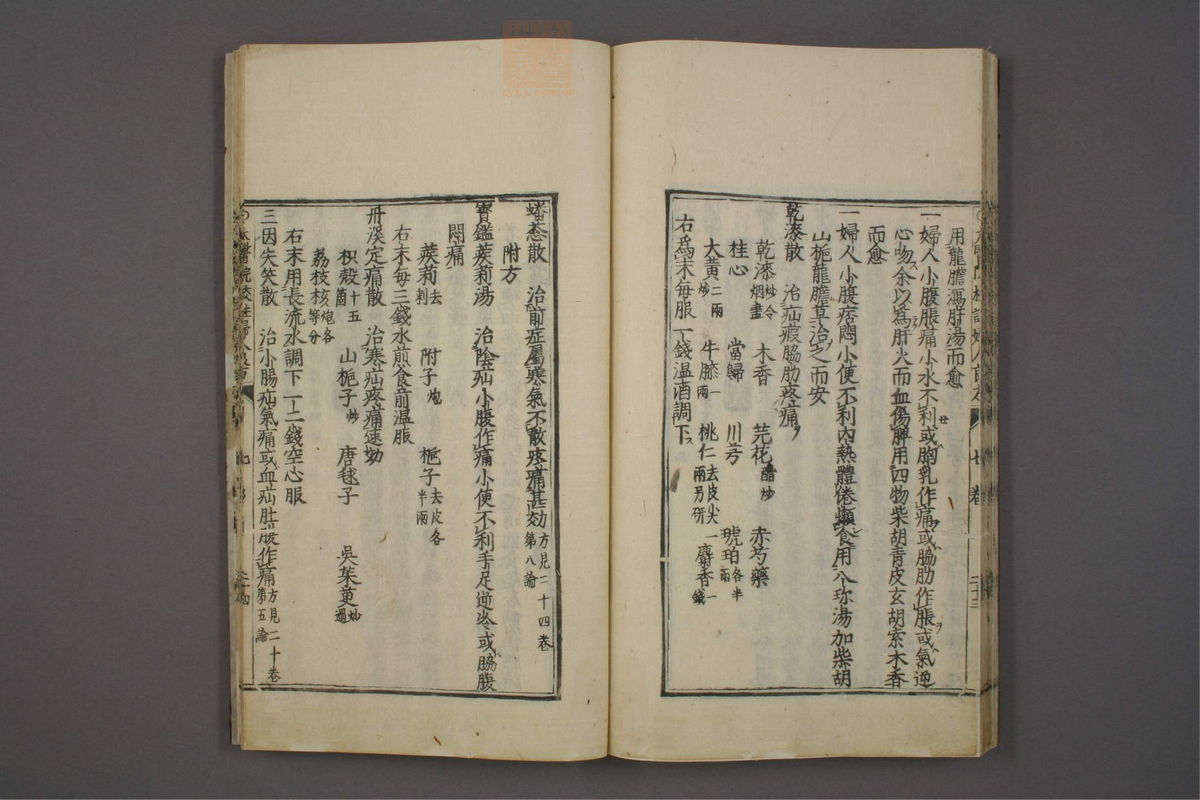 用龍膽瀉肝湯而愈
一婦人小腹脹痛小水不利或胸乳作痛或脇肋作脹或氣逆
心吻余以爲肝火而血傷脾用四物柴胡青皮玄胡索木香
而愈
一婦人小腹痞悶小便不利內熱體倦懶食用八珍湯加柴胡
山梔龍膽草治之而安
乾漆散 治疝瘕脇肋疼痛
乾漆炒令烟盡 木香 芫花醋炒 赤芍藥
桂心 當歸 川芎 琥珀各半兩
大黃二兩炒 牛膝一兩 桃仁一兩去皮尖另研 麝香一錢
右爲末每服一錢温酒調下
七卷
二十三
蟠葱散 治前症屬寒氣不散疼痛甚効方見二十四卷第八論
附方
寳鑑蒺莉湯 治陰疝小腹作痛小便不利手足逆冷或脇腹
悶痛
蒺莉去刺 附子炮 梔子去皮各半兩
右末每三錢水煎食前温服
丹溪定痛散 治寒疝疼痛速効
枳殼十五箇 山梔子炒 唐毬子 吳茱萸炒過
荔枝核炮各等分
右末用長流水調下一二錢空心服
三因失笑散 治小腸疝氣痛或血疝肚腹作痛方見二十卷第五論